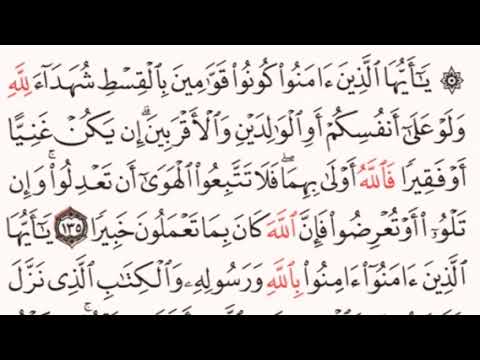 ۞ يَـٰٓأَيُّهَا ٱلَّذِينَ ءَامَنُوا۟ كُونُوا۟ قَوَّٰمِينَ بِٱلْقِسْطِ شُهَدَآءَ لِلَّهِ
وَلَوْ عَلَىٰٓ أَنفُسِكُمْ أَوِ ٱلْوَٰلِدَيْنِ وَٱلْأَقْرَبِينَ ۚ إِن يَكُنْ غَنِيًّا
أَوْ فَقِيرًا فَٱللَّهُ أَوْلَىٰ بِهِمَا ۖ فَلَا تَتَّبِعُوا۟ ٱلْهَوَىٰٓ أَن تَعْدِلُوا۟ ۚ وَإِن
تَلْوُۥٓا۟ أَوْ تُعْرِضُوا۟ فَإِنَّ ٱللَّهَ كَانَ بِمَا تَعْمَلُونَ خَبِيرًا ١٣٥ يَـٰٓأَيُّهَا
ٱلَّذِينَ ءَامَنُوٓا۟ ءَامِنُوا۟ بِٱللَّهِ وَرَسُولِهِۦ وَٱلْكِتَـٰبِ ٱلَّذِى نَزَّلَ